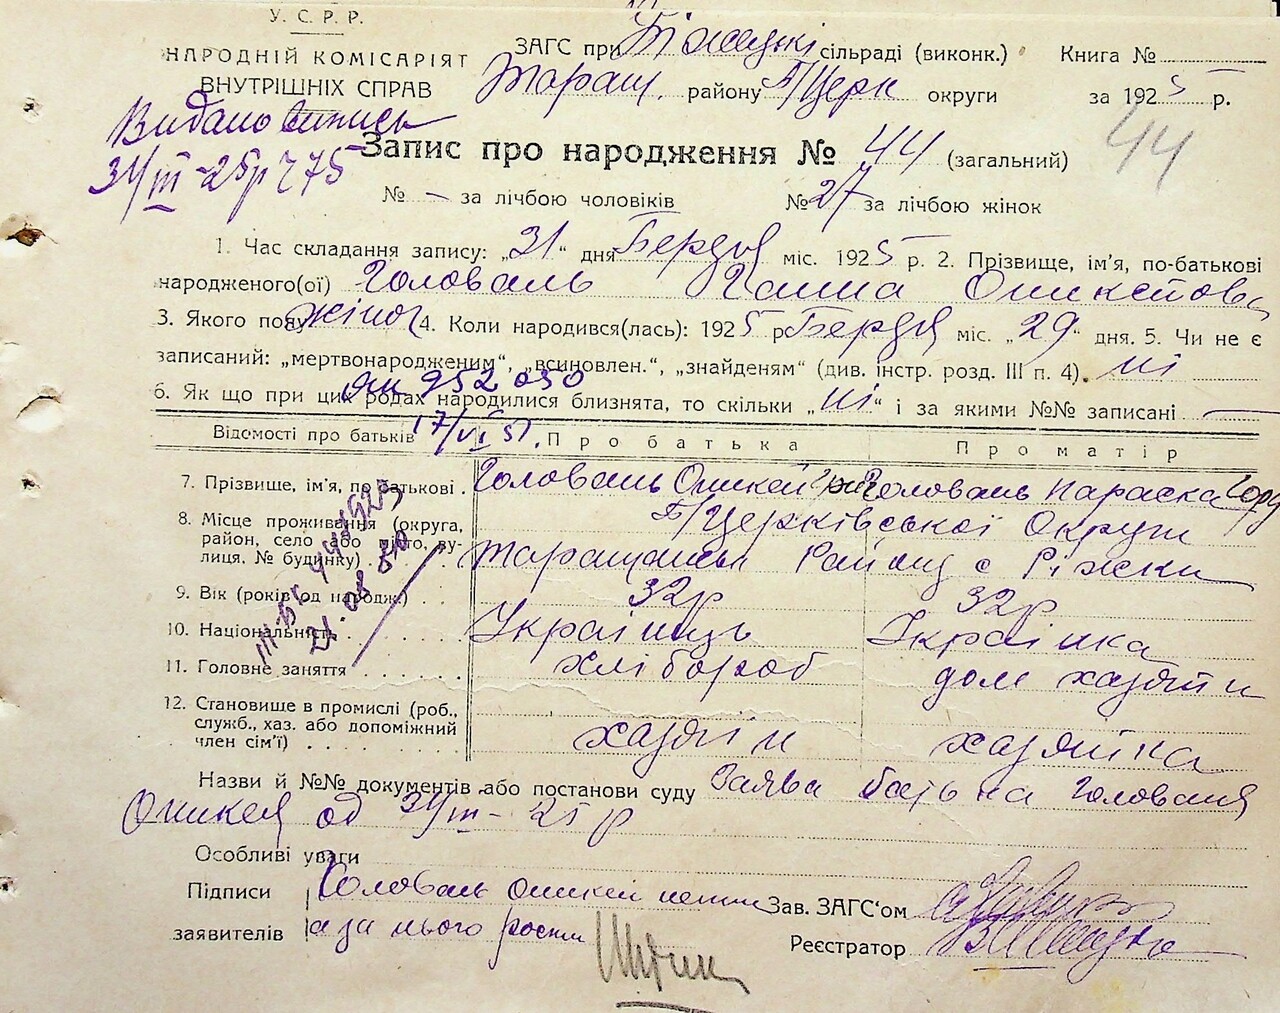 У. С. Р. Р.
НАРОДНІЙ КОМІСАРІЯТ
ВНУТРІШНІХ СПРАВ
ЗАГС при сільраді (виконк.) Книга №
Таращ. району Б/Церк округи за 1925 р.
Видано випись
31/III-25р 275
Запис про народження № 44 (загальний) 44
№ — за лічбою чоловіків № 27 за лічбою жінок
1. Час складання запису: „31“ дня Березня міс. 1925 р. 2. Прізвище, ім'я, по-батькові
народженого(ої) Головань Ганна Оникеїовн
3. Якого полу жіноч 4. Коли народився(лась): 1925 р Березня міс. „29“ дня. 5. Чи не є
записаний: „мертвонародженим“, „всиновлен.“, „знайденям“ (див. інстр. розд. III п. 4). ні
6. Як що при цих родах народилися близнята, то скільки „ні“ і за якими №№ записані —
952050
17/VI 51.
Відомості про батьків Про батька Про матір
7. Прізвище, ім'я, по батькові . Головань Оникей Головань Параска
8. Місце проживання (округа, Б/Церківської Округи
район, село або місто, ву-
лиця, № будинку) . Таращанськ Району с Ріжки
21.08.50
9. Вік (років од народж.) . . 32р 32р
10. Національність . . . . . . Українць Українка
11. Головне заняття . . . . . . хлібороб дом хазяйн
12. Становище в промислі (роб.,
служб., хаз. або допоміжний
член сім'ї) . . . . . . . . хазяїн хазяйка
Назви й №№ документів або постанови суду Заява батька Голованя
Оникея од 31/III-25 р
Особливі уваги
Підписи Головань Оникей Зав. ЗАГС'ом
заявителів а за нього
Реєстратор